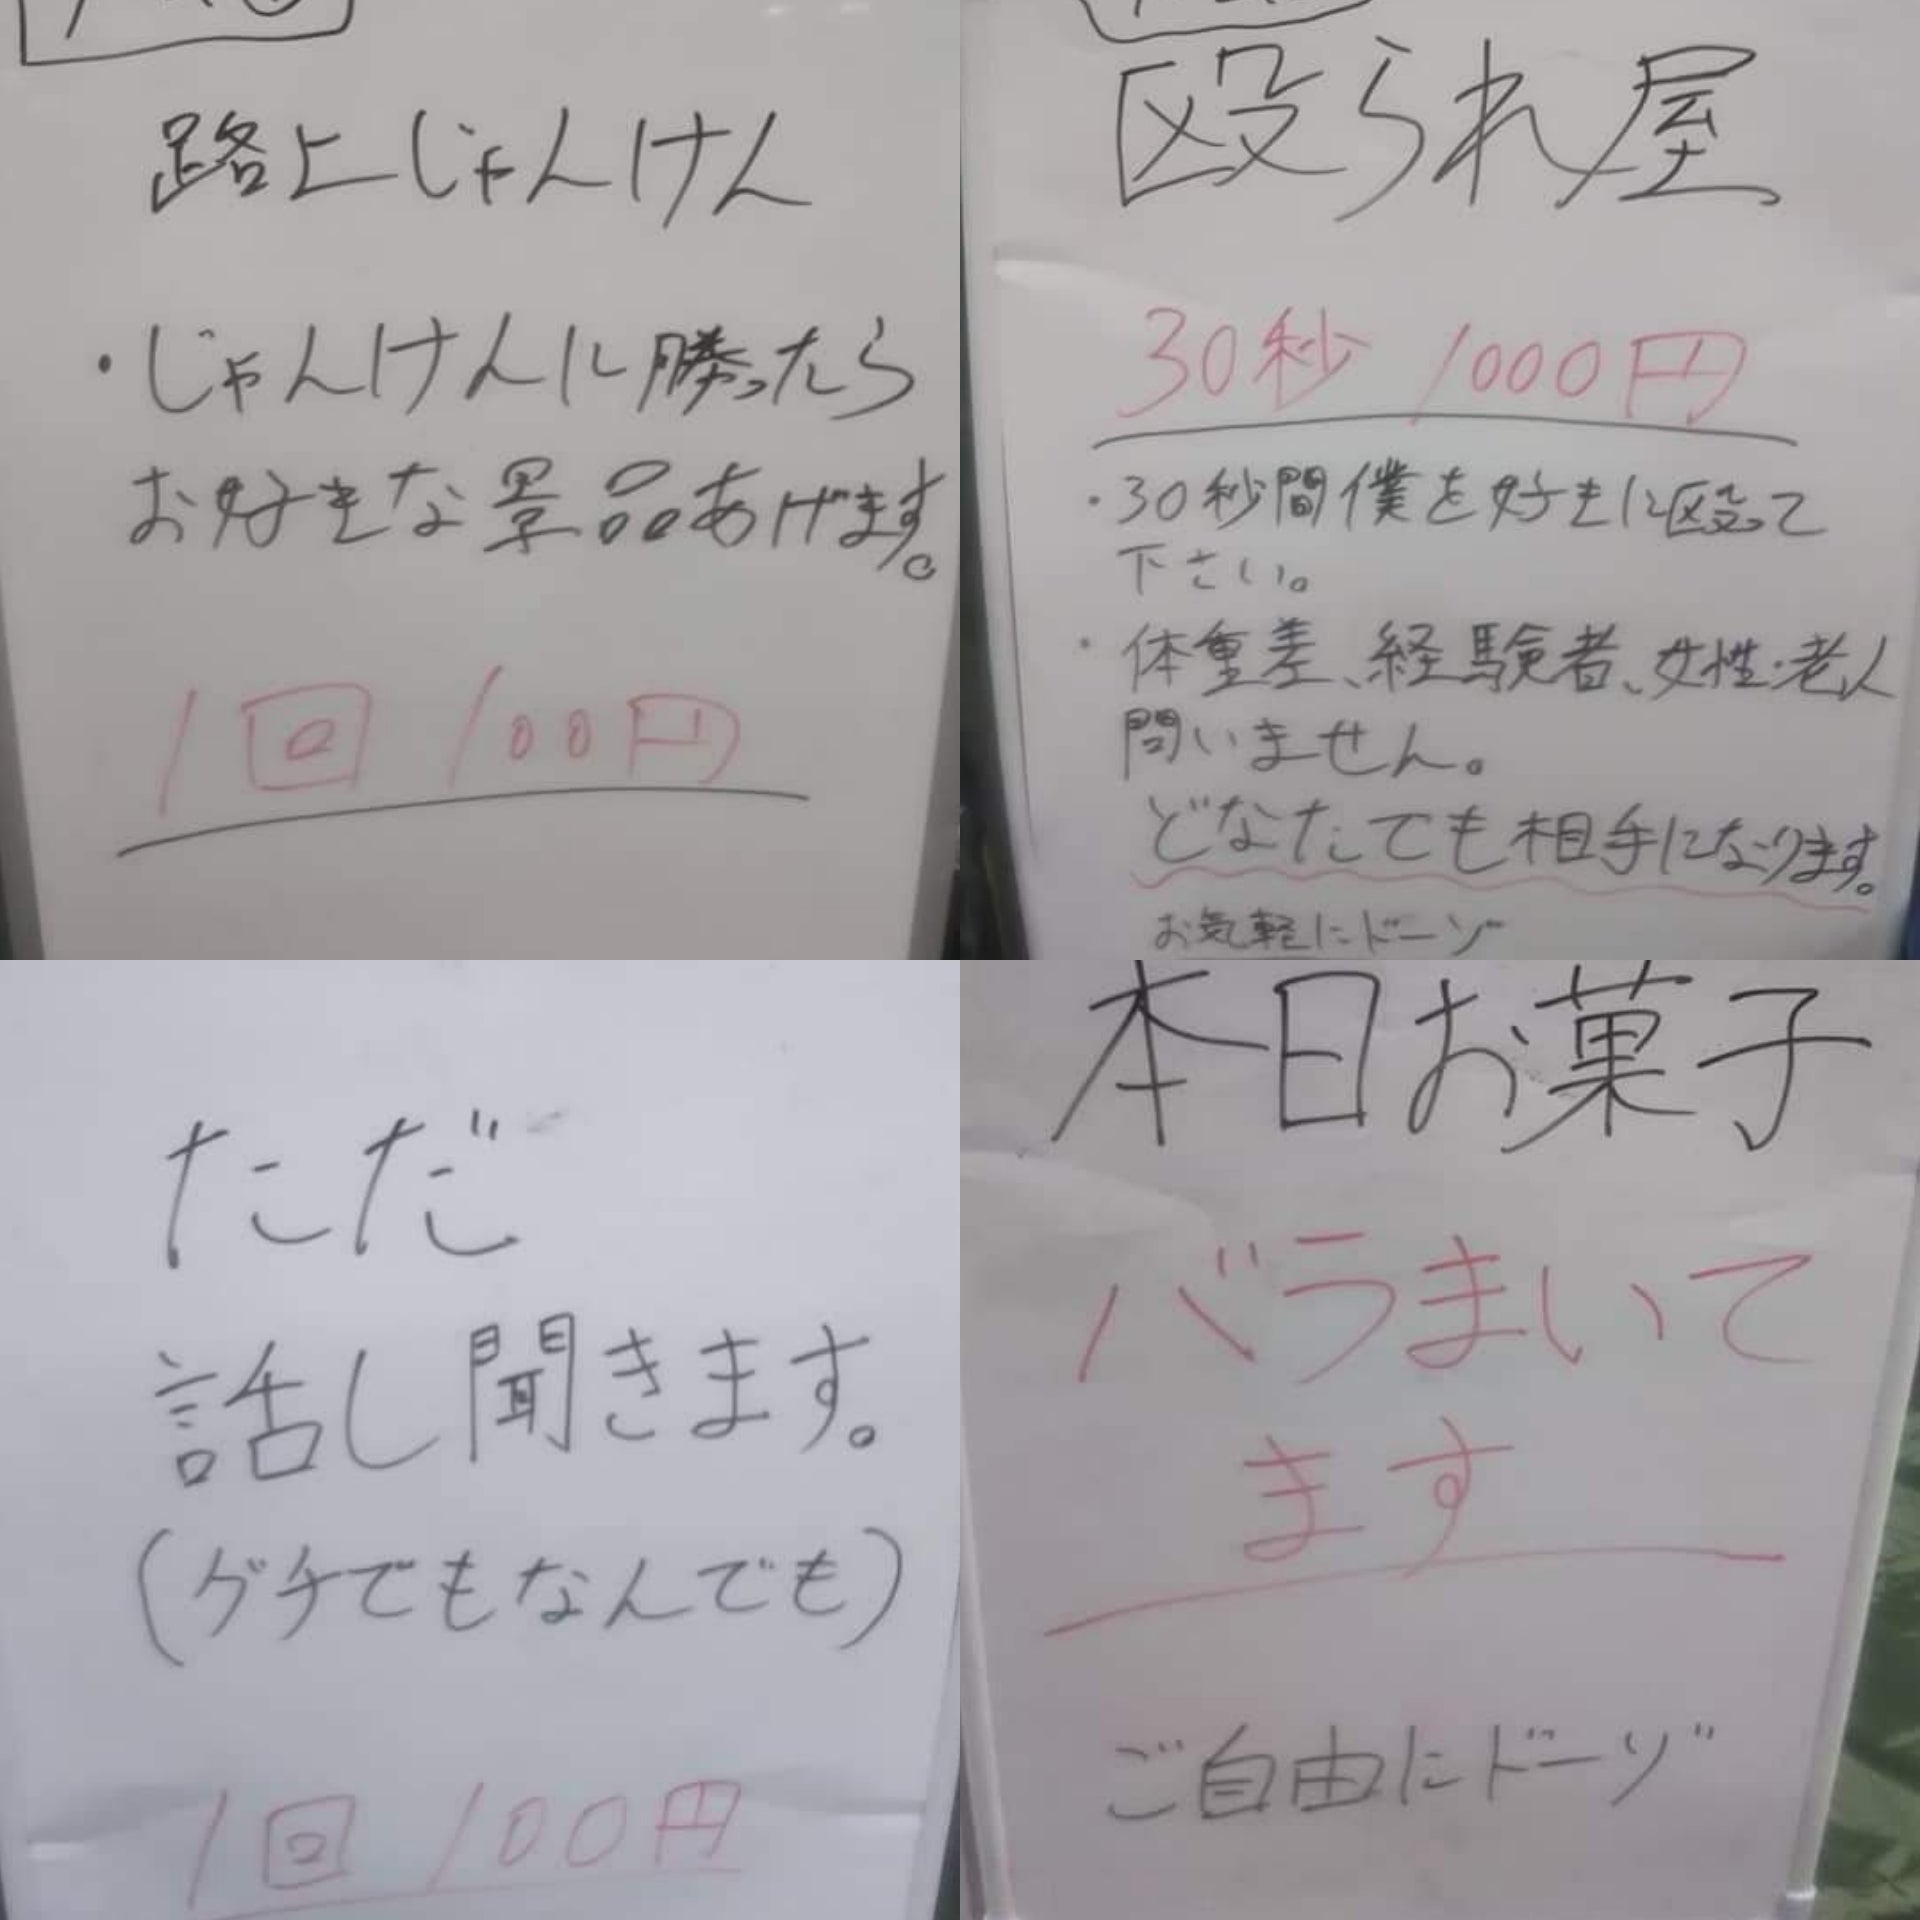 路上じゃんけん
・じゃんけんに勝ったら
お好きな景品あげます。
1回 100円
殴られ屋
30秒 1000円
・30秒間僕を好きに殴って
下さい。
・体重差、経験者、女性・老人
問いません。
どなたでも相手になります。
お気軽にドーゾ
ただ
話し聞きます。
(グチでもなんでも)
1回 100円
本日お菓子
バラまいて
ます
ご自由にドーゾ